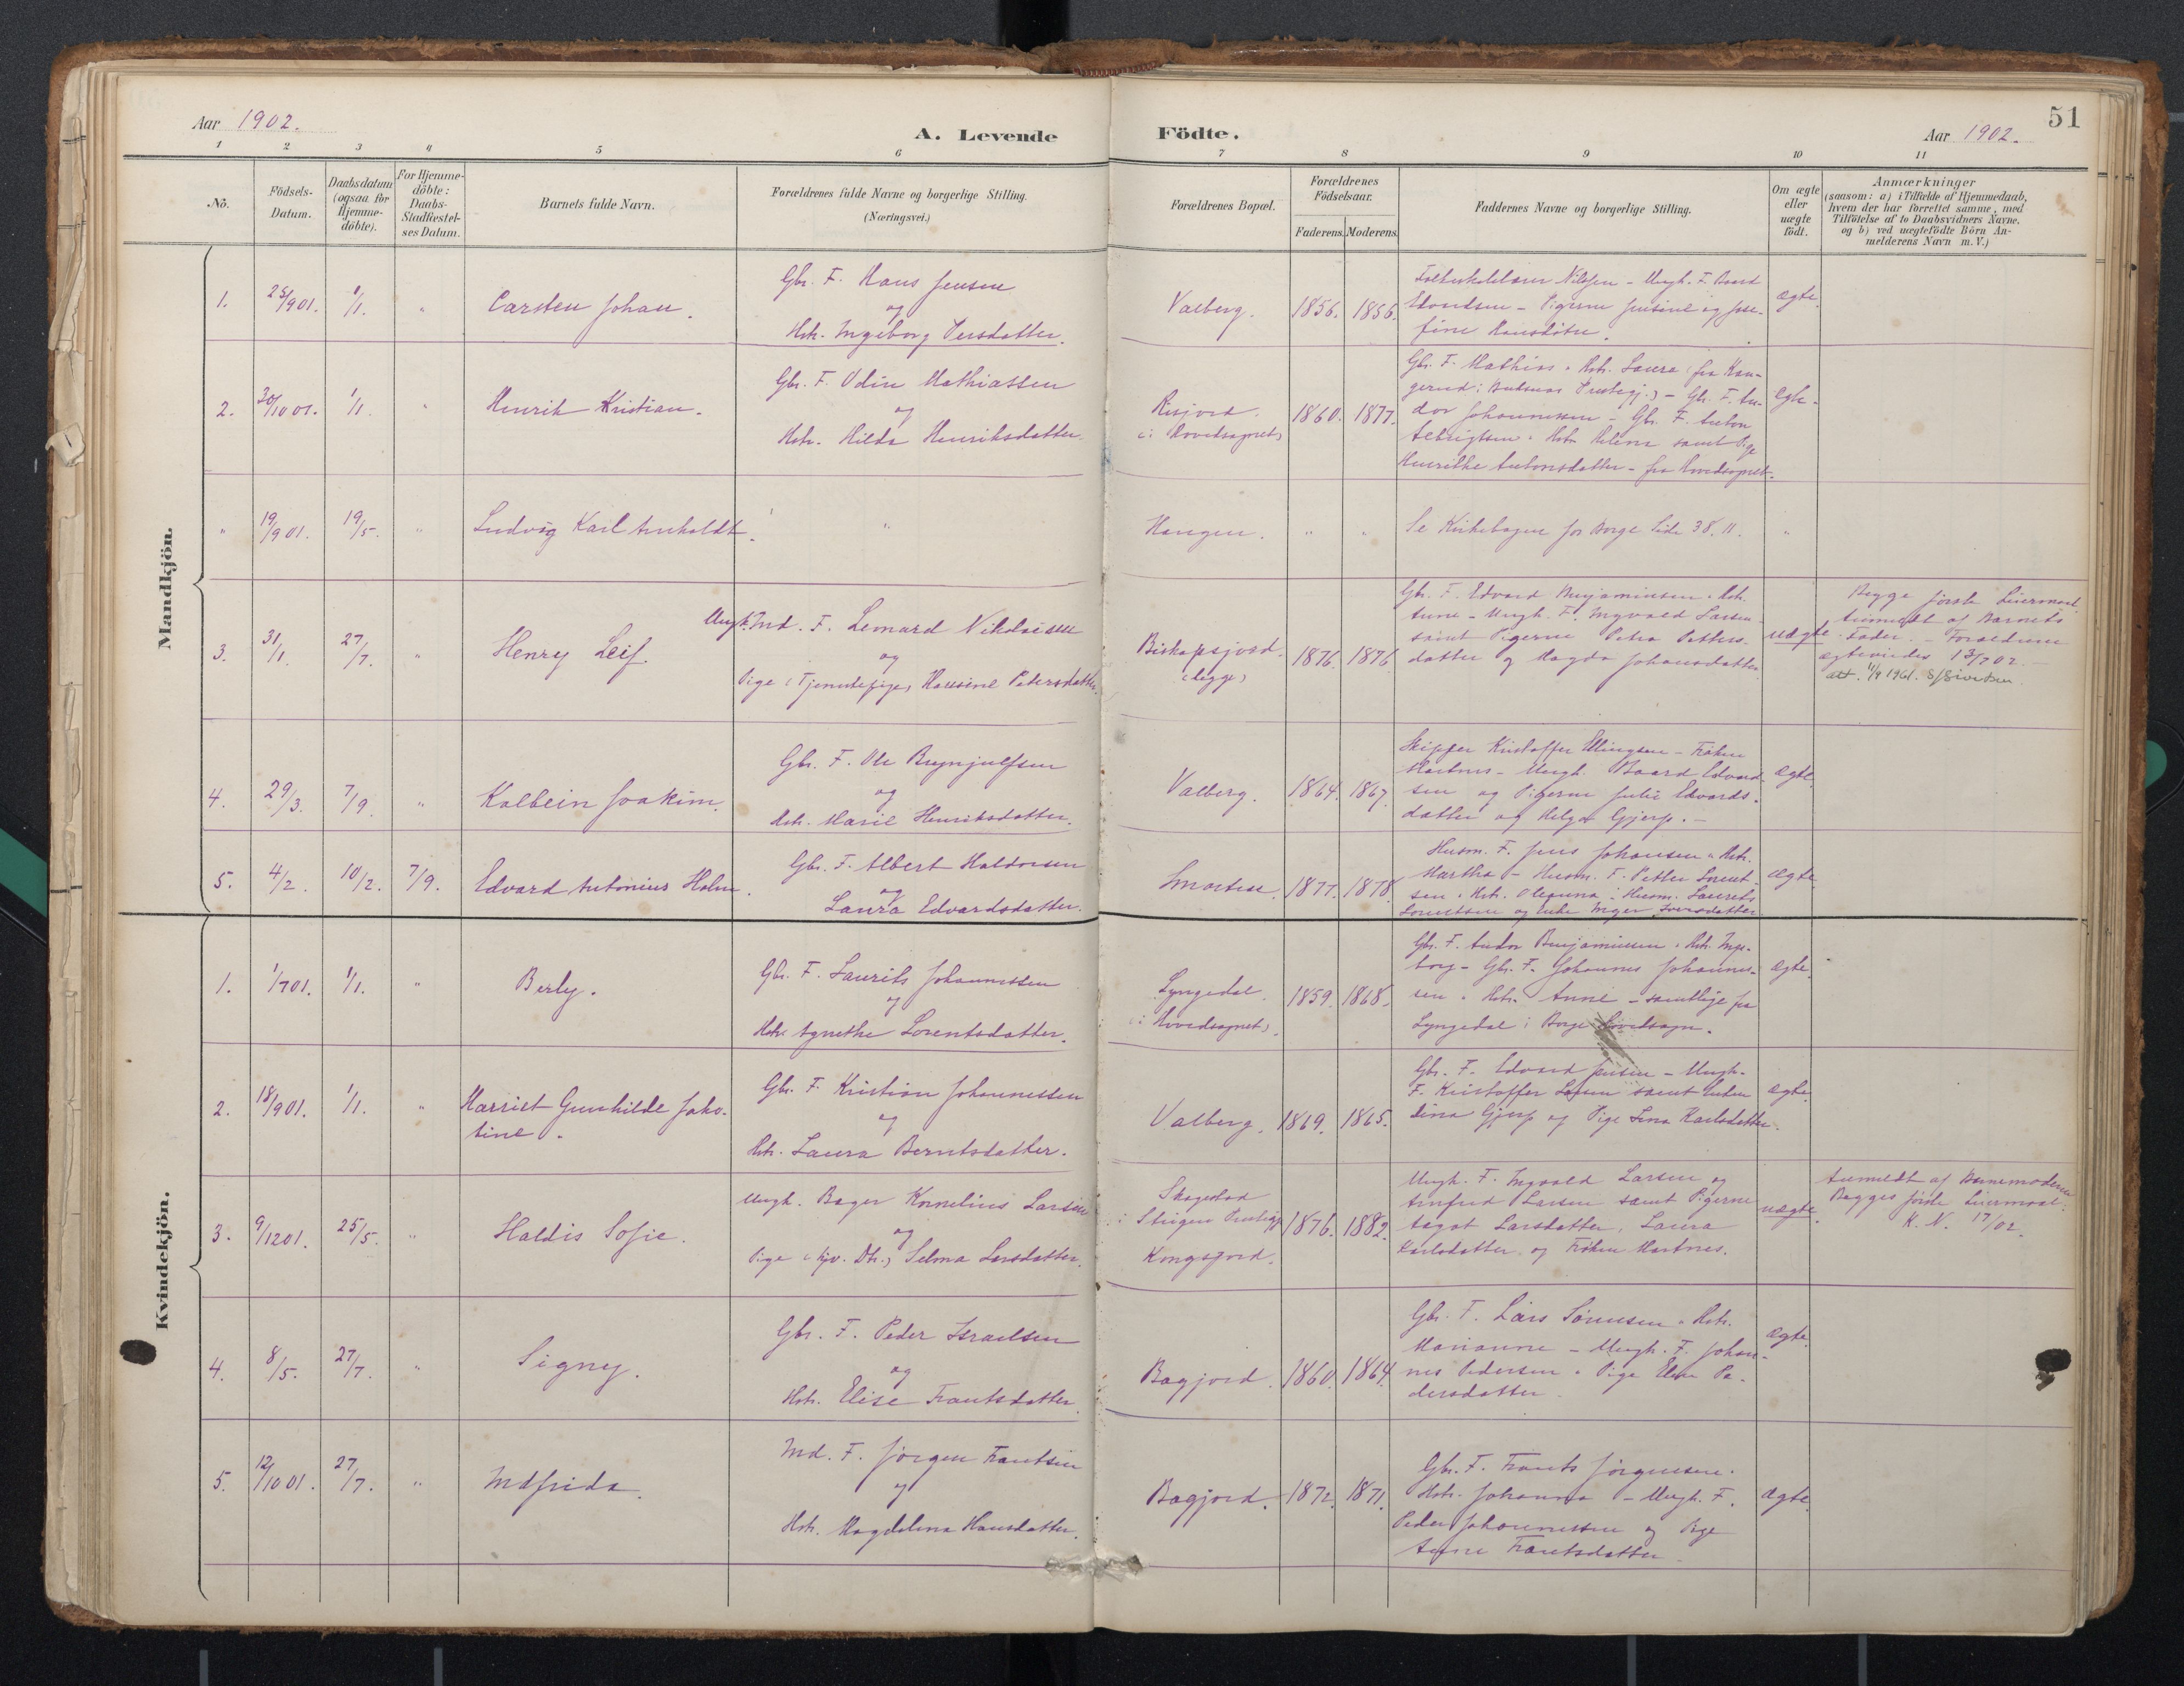 Aar 1902.
A. Levende Födte.
Aar 1902.
51
1 2 3 4 5 6 7 8 9 10 11
No.
Födsels-Datum.
Daabsdatum (ogsaa for Hjemme-döbte).
For Hjemme-döbte: Daabs-Stadfæstel-ses Datum.
Barnets fulde Navn.
Forældrenes fulde Navne og borgerlige Stilling.
(Næringsvei.)
Forældrenes Bopæl.
Forældrenes Födselsaar.
Faderens. Moderens.
Faddernes Navne og borgerlige Stilling.
Om ægte eller uægte födt.
Anmærkninger
(saasom: a) i Tilfælde af Hjemmedaab,
hvem der har forrettet samme, med
Tilföielse af to Daabsvidners Navne.
og b) ved uægtefödte Börn An-
melderens Navn m. V.)
Mandkjön.
1. 25/9 01. 1/1. " Carsten Johan.
Gbr. F. Hans Jensen
og
Hstr. Ingeborg Persdatter.
Valberg. 1856. 1856.
Nilsen - Ungk. F. Baard
Edvardsen - Pigerne Jensine og Jose-
fine Hansdötre.
ægte.
2. 30/10 01. 1/1. " Henrik Kristian.
Gbr. F. Odin Mathiassen
og
Hstr. Hilda Henriksdatter.
Risjord.
(i Hovedsognet) 1860. 1877.
Gbr. F. Mathias " Hstr. Laura (fra Han-
gerud i Buksnes Prestegj.) - Gbr. F. An-
dor Johannessen - Gbr. F. Anton
Albrigtsen " Hstr. Helena samt Pige
Henrikke Antonsdatter - fra Hovedsognet.
ægte.
" 19/9 01. 19/5. " Ludvig Karl Arnholdt.
"
Haugen. " "
Se Kirkebogen for Borge Side 38. 11.
"
3. 31/1. 27/7. " Henry Leif.
Ungk. Ind. F. Lernard Nikolaisen
og
Pige (Tjenestepige) Hansine Petersdatter.
Biskopsjord.
(begge) 1876. 1876
Gbr. F. Edvard Benjaminsen " Hstr.
Anne - Ungk. F. Ingvald Larsen
samt Pigerne Petra Petters-
datter og Magda Johansdatter
uægte.
Begge förste Leiermaal.
Anmeldt af Barnets
Fader. - Forældrene
ægteviedes 13/7 02. -
att. 11/9 1961. S/Sivertsen
4. 29/3. 7/9. " Kolbein Joakim.
Gbr. F. Ole Brynjulfsen
og
Hstr. Marie Henriksdatter.
Valberg. 1864. 1867.
Skipper Kristoffer Ellingsen - Fröken
Hartnes - Ungk. Baard Edvard-
sen og Pigerne Julie Edvards-
datter og Helga Gjerp. -
ægte.
5. 4/2. 10/2. 7/9. Edvard Antonius Holm.
Gbr. F. Albert Haldorsen
og
Laura Edvardsdatter.
Smorten. 1877. 1878.
Husm. F. Jens Johansen " Hstr.
Martha - Husm. F. Petter Lorent-
sen " Hstr. Oleanna - Husm. Laurits
Lorentsen og Enke Inger Iversdatter
ægte.
Kvindekjön.
1. 1/7 01. 1/1. " Berly.
Gbr. F. Laurits Johannessen
og
Hstr. Agnethe Lorentsdatter.
Lyngedal.
(i Hovedsognet). 1859. 1868.
Gbr. F. Andor Benjaminsen " Hstr. Inge-
borg - Gbr. F. Johannes Johannes-
sen " Hstr. Anne - samtlige fra
Lyngedal i Borge Hovedsogn.
ægte.
2. 18/9 01. 1/1. " Harriet Gunhilde Jako-
bine.
Gbr. F. Kristian Johannessen
og
Hstr. Laura Berntsdatter.
Valberg. 1869. 1865.
Gbr. F. Edvard Jensen - Ungk.
F. Kristoffer Larsen samt Enken
Lina Gjerp og Pige Lena Karlsdatter.
ægte.
3. 9/12 01. 25/5. " Haldis Sofie.
Ungk. Bager Kornelius Larsen
og
Pige (Gjv. Dtr.) Selma Larsdatter.
Skagstad
i Steigen Prestegj.
Kongsjord. 1876. 1882.
Ungk. F. Ingvald Larsen og
Arnfred Larsen samt Pigerne
Aagot Larsdatter, Laura
Karlsdatter og Fröken Hartnes.
uægte.
Anmeldt af Barnemoderen
Begges förste Leiermaal.
K. N. 17/02.
4. 8/5. 27/7. " Signy.
Gbr. F. Peder Israelsen
og
Hstr. Elise Frantsdatter.
Bagjord. 1860. 1864.
Gbr. F. Lars Sörensen " Hstr.
Marianne - Ungk. F. Johan-
nes Pedersen " Pige Elen Pe-
dersdatter.
ægte.
5. 12/10 01. 27/7. " Indfrida.
Ind. F. Jörgen Frantsen
og
Hstr. Magdalena Hansdatter.
Bagjord. 1872. 1871.
Gbr. F. Frants Jörgensen "
Hstr. Johanna - Ungk. F.
Peder Johannessen og Pige
Anne Frantsdatter.
ægte.